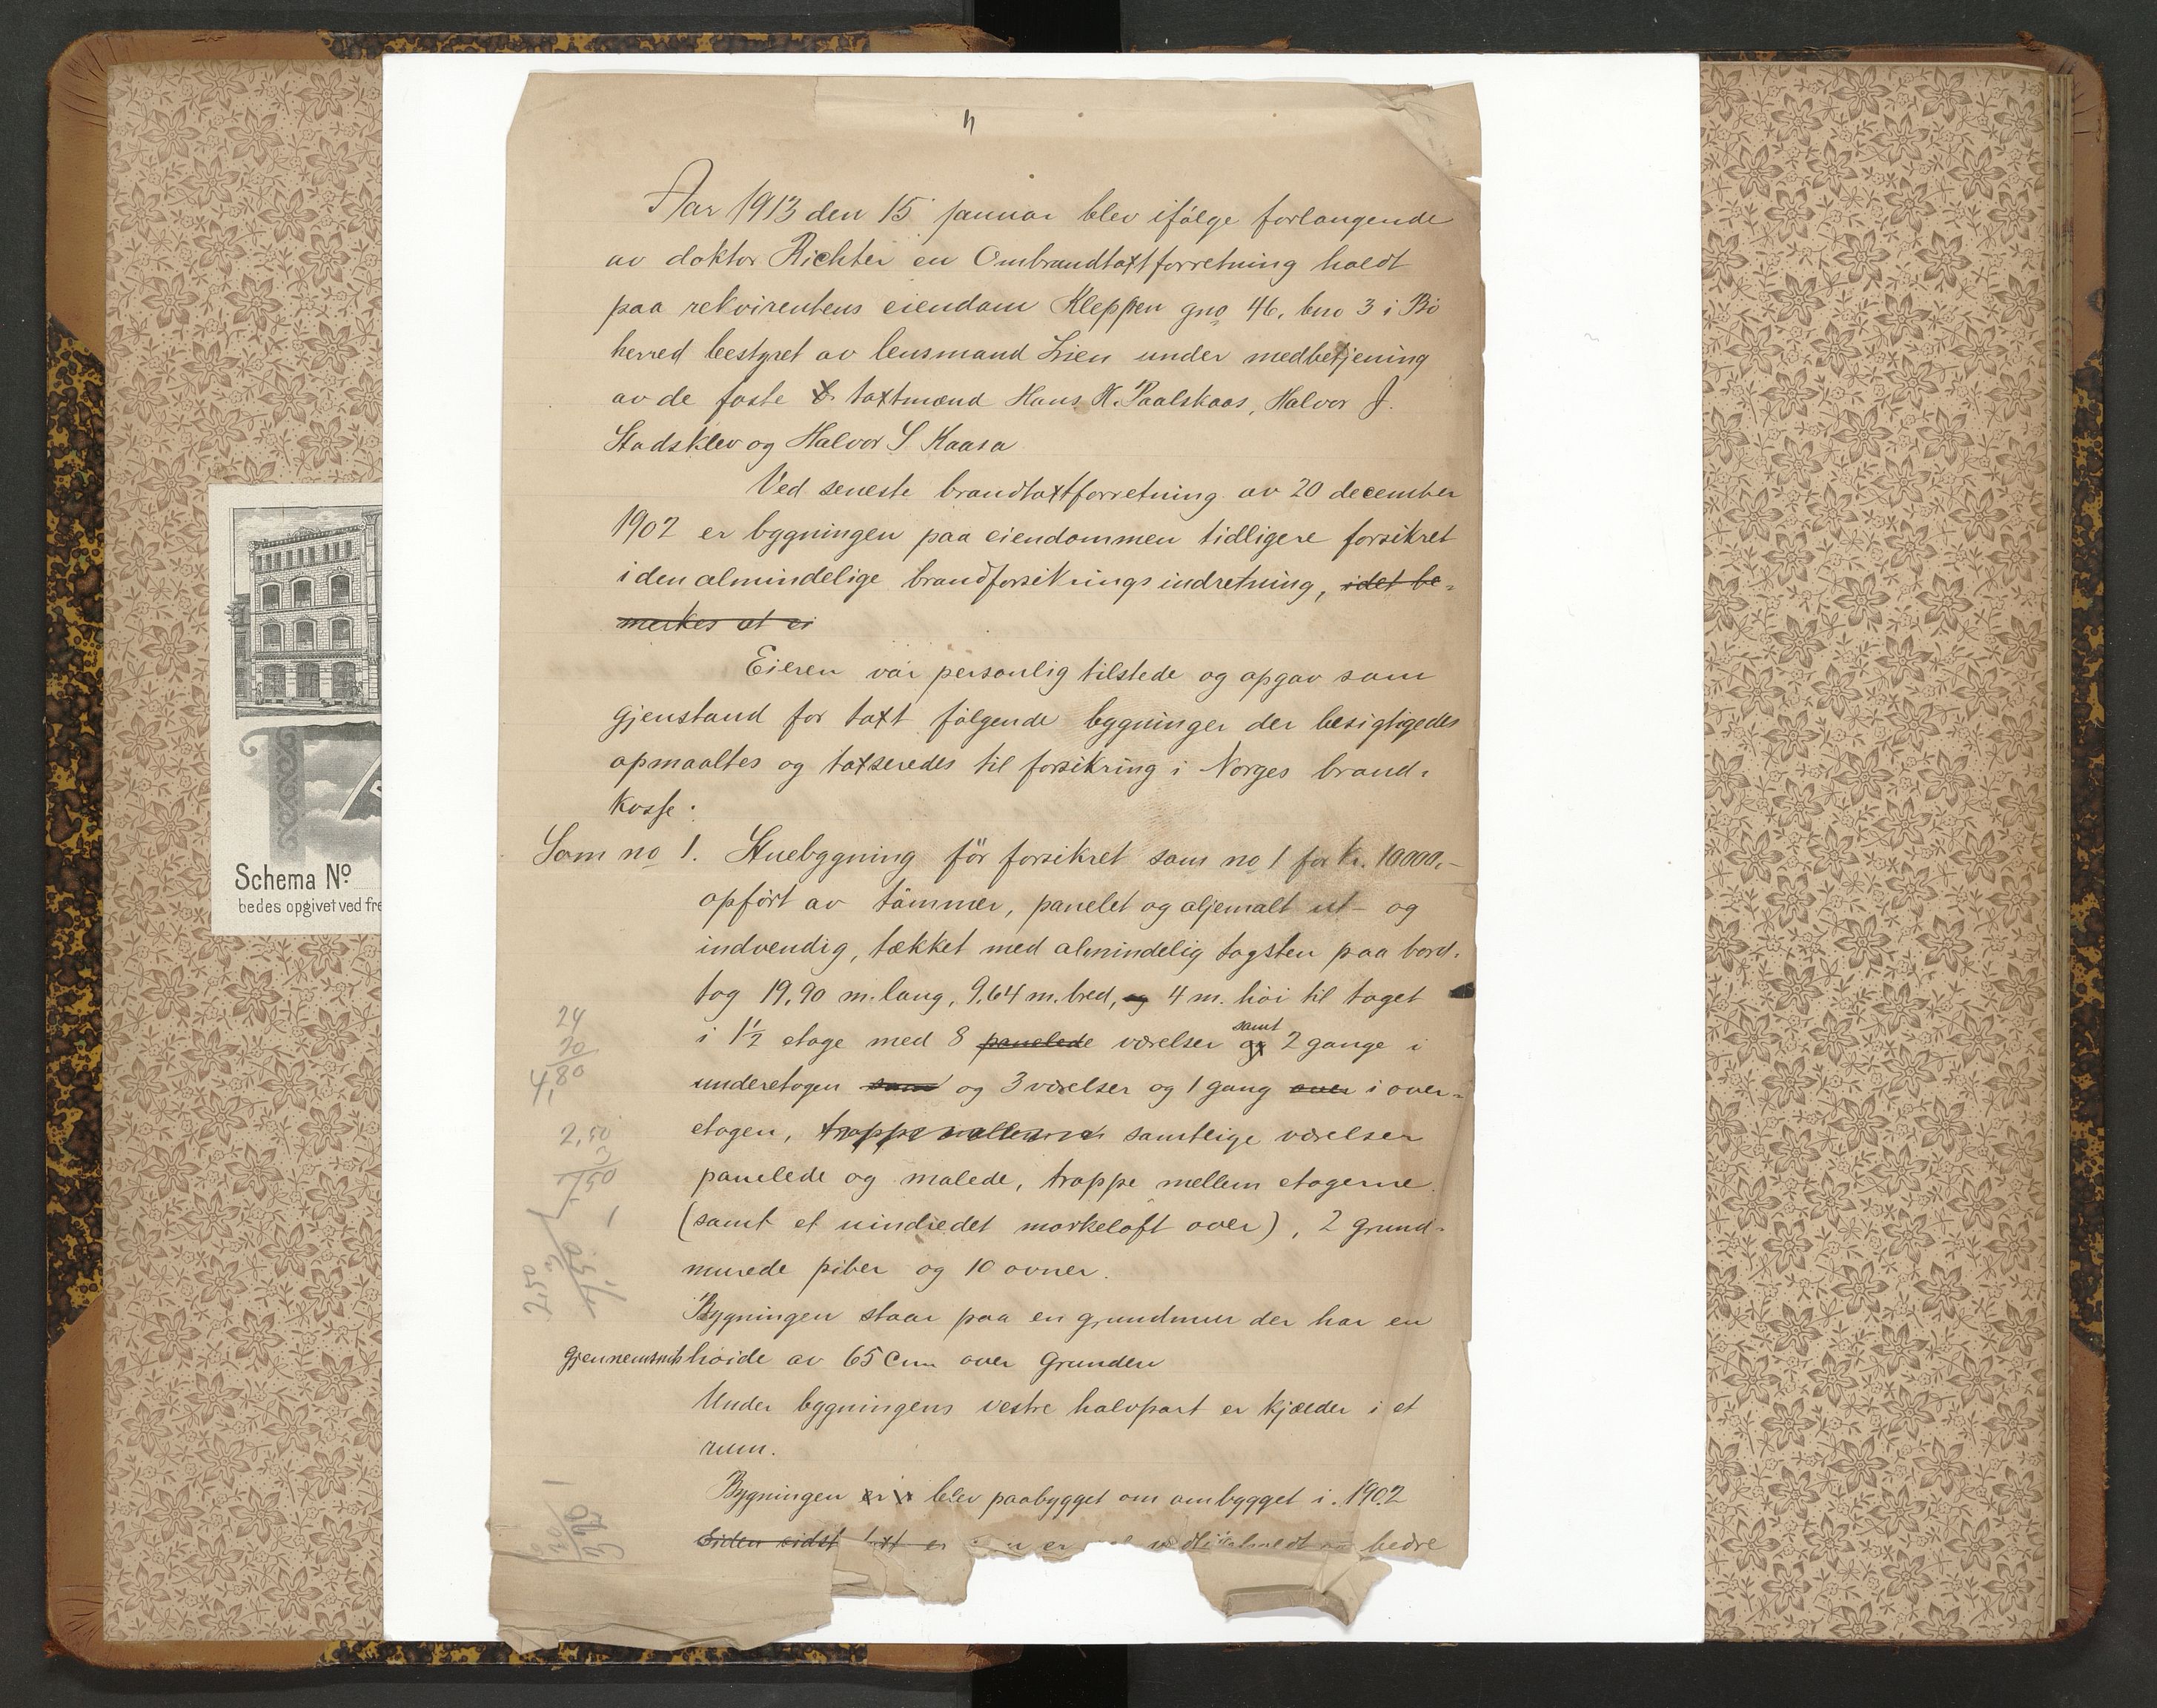 Aar 1913 den 15 januar blev ifølge forlangende
av doktor Richter en Ombrandtaxtforretning holdt
paa rekvirentens eiendom Kleppen gno 46, bno 3 i Bø
herred bestyret av lensmand Lien under medbetjening
av de faste taxtmænd Hans H. Paalskaas, Halvor J.
Stadsklev og Halvor S. Kaasa
Ved seneste brandtaxtforretning av 20 december
1902 er bygningen paa eiendommen tidligere forsikret
i den almindelige brandforsikringsindretning, idet be-
merkes at ei
Eieren var personlig tilstede og opgav som
gjenstand for taxt følgende bygninger der besigtigedes
opmaaltes og taxseredes til forsikring i Norges brand-
kasse:
Som no 1. Stuebygning før forsikret som no 1 for kr. 10000,-
opført av tømmer, panelet og oljemalt ut- og
indvendig, tækket med almindelig tagsten paa bord-
tag 19,90 m. lang, 9,64 m. bred, og 4 m. høi til taget
i 1 1/2 etage med 8 panelede værelser og samt 2 gange i
underetagen samt og 3 værelser og 1 gang over i over-
etagen, trappe mellem samtlige værelser
panelede og malede, trappe mellem etagerne
(samt et uindredet mørkeloft over), 2 grund-
murede piber og 10 ovner.
Bygningen staar paa en grundmur der har en
gjennemsnitshøide av 65 Cm over grunden
Under bygningens vestre halvpart er kjælder i et
rum.
Bygningen er blev paabygget om ombygget i 1902
Siden sidst taxt er vedlikeholdt bedre
24
20
4,80
2,50
3
7,50
1
2,50
3
7,50
Schema No
bedes opgivet ved fre